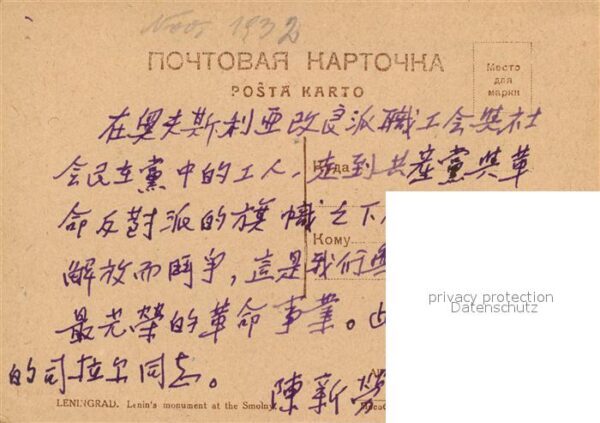 Nov 1932
ПОЧТОВАЯ КАРТОЧКА
POŜTA KARTO
Место
для
марки
在奧夫斯利亚改良派職工会與社
会民主黨中的工人,走到共產黨與革
命反對派的旗幟之下
解放而鬥爭,這是我們
最光榮的革命事業。
的司拉尔同志。
陳新勞
Куда
Кому
LENINGRAD. Lenin's monument at the Smolny
privacy protection
Datenschutz